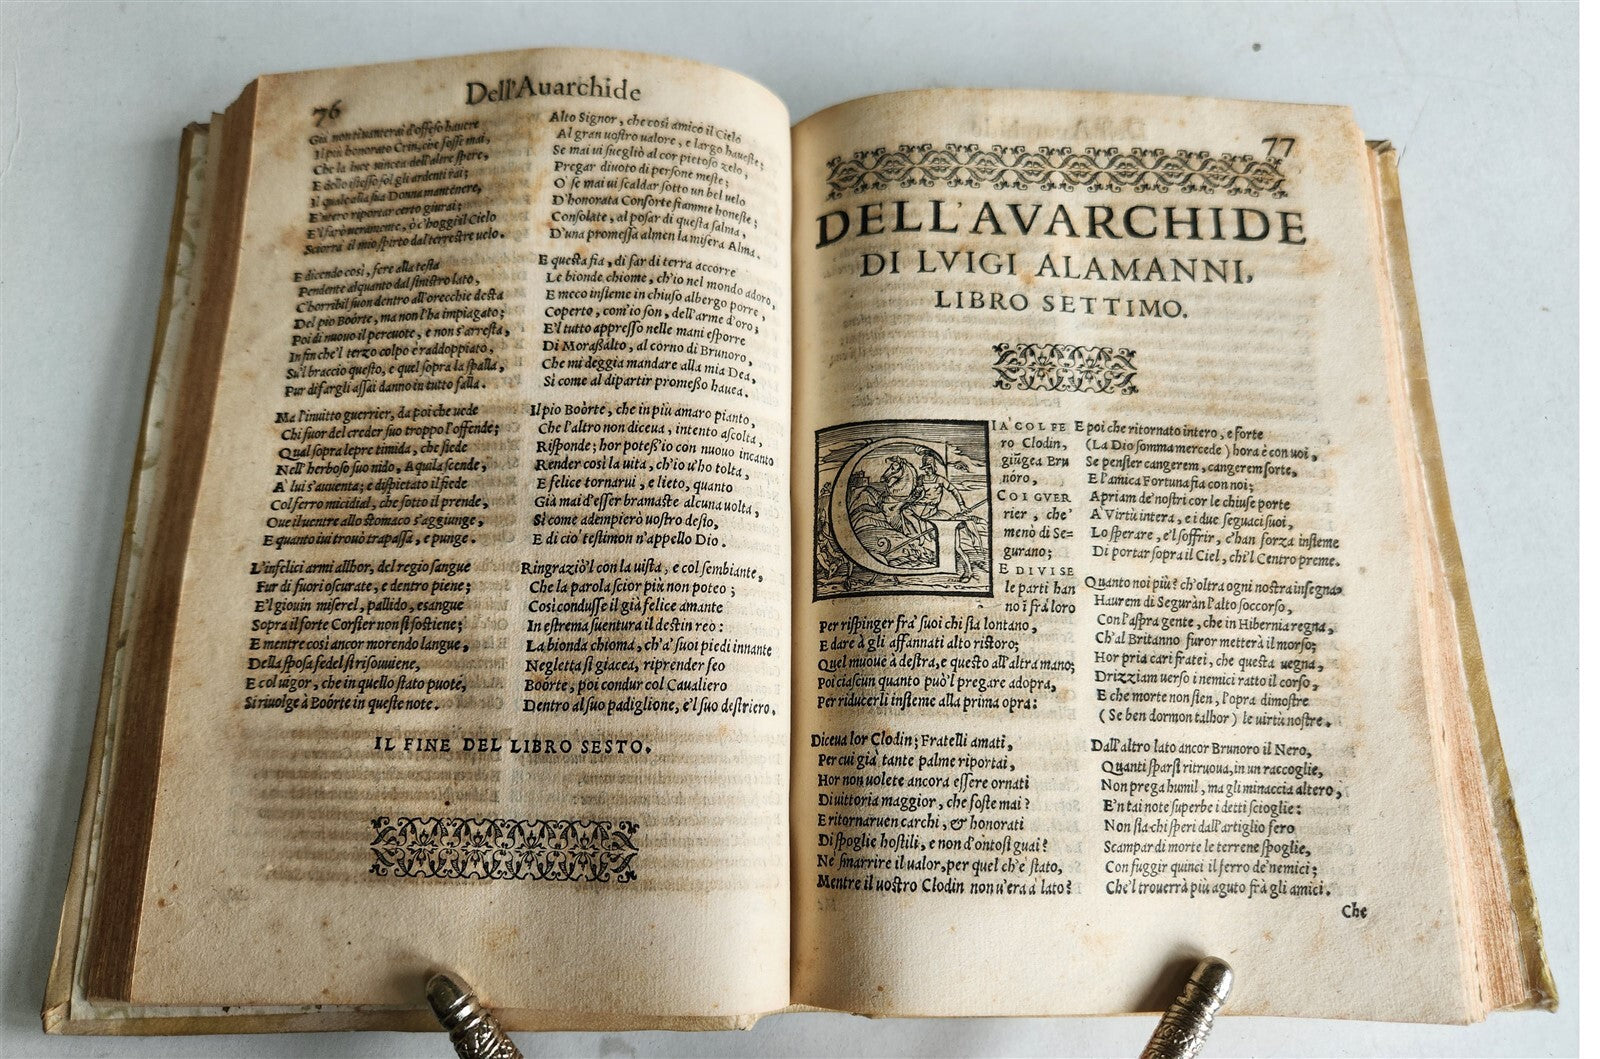 76
Dell'Auarchide
Già non ti vanterai d'offeso hauere
Il più honorato Crin, che fosse mai,
Che la luce vincea dell'altre spere,
E dello istesso sol gli ardenti rai;
Il quale alla sia Donna mantenere,
E vero riportar certo giurai;
E'l farò veramente, ò c'hoggi il Cielo
Sciorrà il mio spirto dal terrestre velo.
E dicendo così, fere alla testa
Pendente alquanto dal sinistro lato,
C'horribil suon dentro all'orecchie desta
Del pio Boòrte, ma non l'ha impiagato;
Poi di nuouo il percuote, e non s'arresta,
Infin che'l terzo colpo e raddoppiato,
Su'l braccio questo, e quel sopra la spalla,
Pur di fargli assai danno in tutto falla.
Ma l'inuitto guerrier, da poi che uede
Chi fuor del creder suo troppo l'offende;
Qual sopra lepre timida, che siede
Nell'herboso suo nido, Aquila scende,
A' lui s'auuenta; e dispietato il fiede
Col ferro micidial, che sotto il prende,
Oue il uentre allo stomaco s'aggiunge,
E quanto iui trouò trapassa, e punge.
L'infelici armi allhor, del regio sangue
Fur di fuori oscurate, e dentro piene;
E'l giouin miserel, pallido, esangue
Sopra il forte Corsier non si sostiene;
E mentre così ancor morendo langue,
Della sposa fedel si risouuiene,
E col uigor, che in quello stato puote,
Si riuolge à Boòrte in queste note.
Alto Signor, che così amico il Cielo
Al gran uostro ualore, e largo haueste;
Se mai ui suegliò al cor pietoso zelo,
Pregar diuoto di persone meste;
O' se mai ui scaldar sotto un bel uelo
D'honorata Consorte fiamme honeste;
Consolate, al posar di questa salma,
D'una promessa almen la misera Alma.
E questa fia, di far di terra accorre
Le bionde chiome, ch'io nel mondo adoro,
E meco insieme in chiuso albergo porre,
Coperto, com'io son, dell'arme d'oro;
E'l tutto appresso nelle mani esporre
Di Morassalto, al corno di Brunoro,
Che mi deggia mandare alla mia Dea,
Si come al dipartir promesso hauea.
Il pio Boòrte, che in più amaro pianto,
Che l'altro non diceua, intento ascolta,
Risponde; hor potess'io con nuouo incanto
Render così la uita, ch'io u'ho tolta,
E felice tornarui, e lieto, quanto
Già mai d'esser bramaste alcuna uolta,
Si come adempierò uostro desio,
E di ciò testimon n'appello Dio.
Ringraziò'l con la uista, e col sembiante,
Che la parola scior più non poteo;
Così condusse il già felice amante
In estrema suentura il destin reo:
La bionda chioma, ch'a' suoi piedi innante
Negletta si giacea, riprender feo
Boòrte, poi condur col Caualiero
Dentro al suo padiglione, e'l suo destriero.
IL FINE DEL LIBRO SESTO.
77
DELL'AVARCHIDE
DI LVIGI ALAMANNI,
LIBRO SETTIMO.
GIA' COL FE
ro Clodin,
giũgea Bru
nòro,
COI GVER
rier, che'
menò di Se=
gurano;
E DIVISE
le parti han
no i frà loro
Per rispinger frà suoi chi stà lontano,
E dare à gli affannati alto ristoro;
Quel muoue à destra, e questo all'altra mano;
Poi ciascun quanto può'l pregare adopra,
Per riducerli insieme alla prima opra:
Diceua lor Clodin; Fratelli amati,
Per cui già tante palme riportai,
Hor non uolete ancora essere ornati
Di uittoria maggior, che foste mai?
E ritornaruen carchi, & honorati
Di spoglie hostili, e non d'ontosi guai?
Nè smarrire il ualor, per quel ch'è stato,
Mentre il uostro Clodin non u'era à lato?
E poi che ritornato intero, e forte
(La Dio somma mercede) hora è con uoi,
Se pensier cangerem, cangerem sorte,
E l'amica Fortuna fia con noi;
Apriam de' nostri cor le chiuse porte
A' Virtù intera, e i due seguaci suoi,
Lo sperare, e'l soffrir, c'han forza insieme
Di portar sopra il Ciel, chi'l Centro preme.
Quanto noi più? ch'oltra ogni nostra insegna,
Haurem di Seguràn l'alto soccorso,
Con l'aspra gente, che in Hibernia regna,
Ch'al Britanno furor metterà il morso;
Hor pria cari fratei, che questa uegna,
Drizziam uerso i nemici ratto il corso,
E che morte non sien, l'opra dimostre
(Se ben dormon talhor) le uirtù nostre.
Dall'altro lato ancor Brunoro il Nero,
Quanti sparsi ritruoua, in un raccoglie,
Non prega humil, ma gli minaccia altero,
E'n tai note superbe i detti scioglie:
Non sia chi speri dall'artiglio fero
Scampar di morte le terrene spoglie,
Con fuggir quinci il ferro de' nemici;
Che'l trouerrà più aguto frà gli amici.
Che